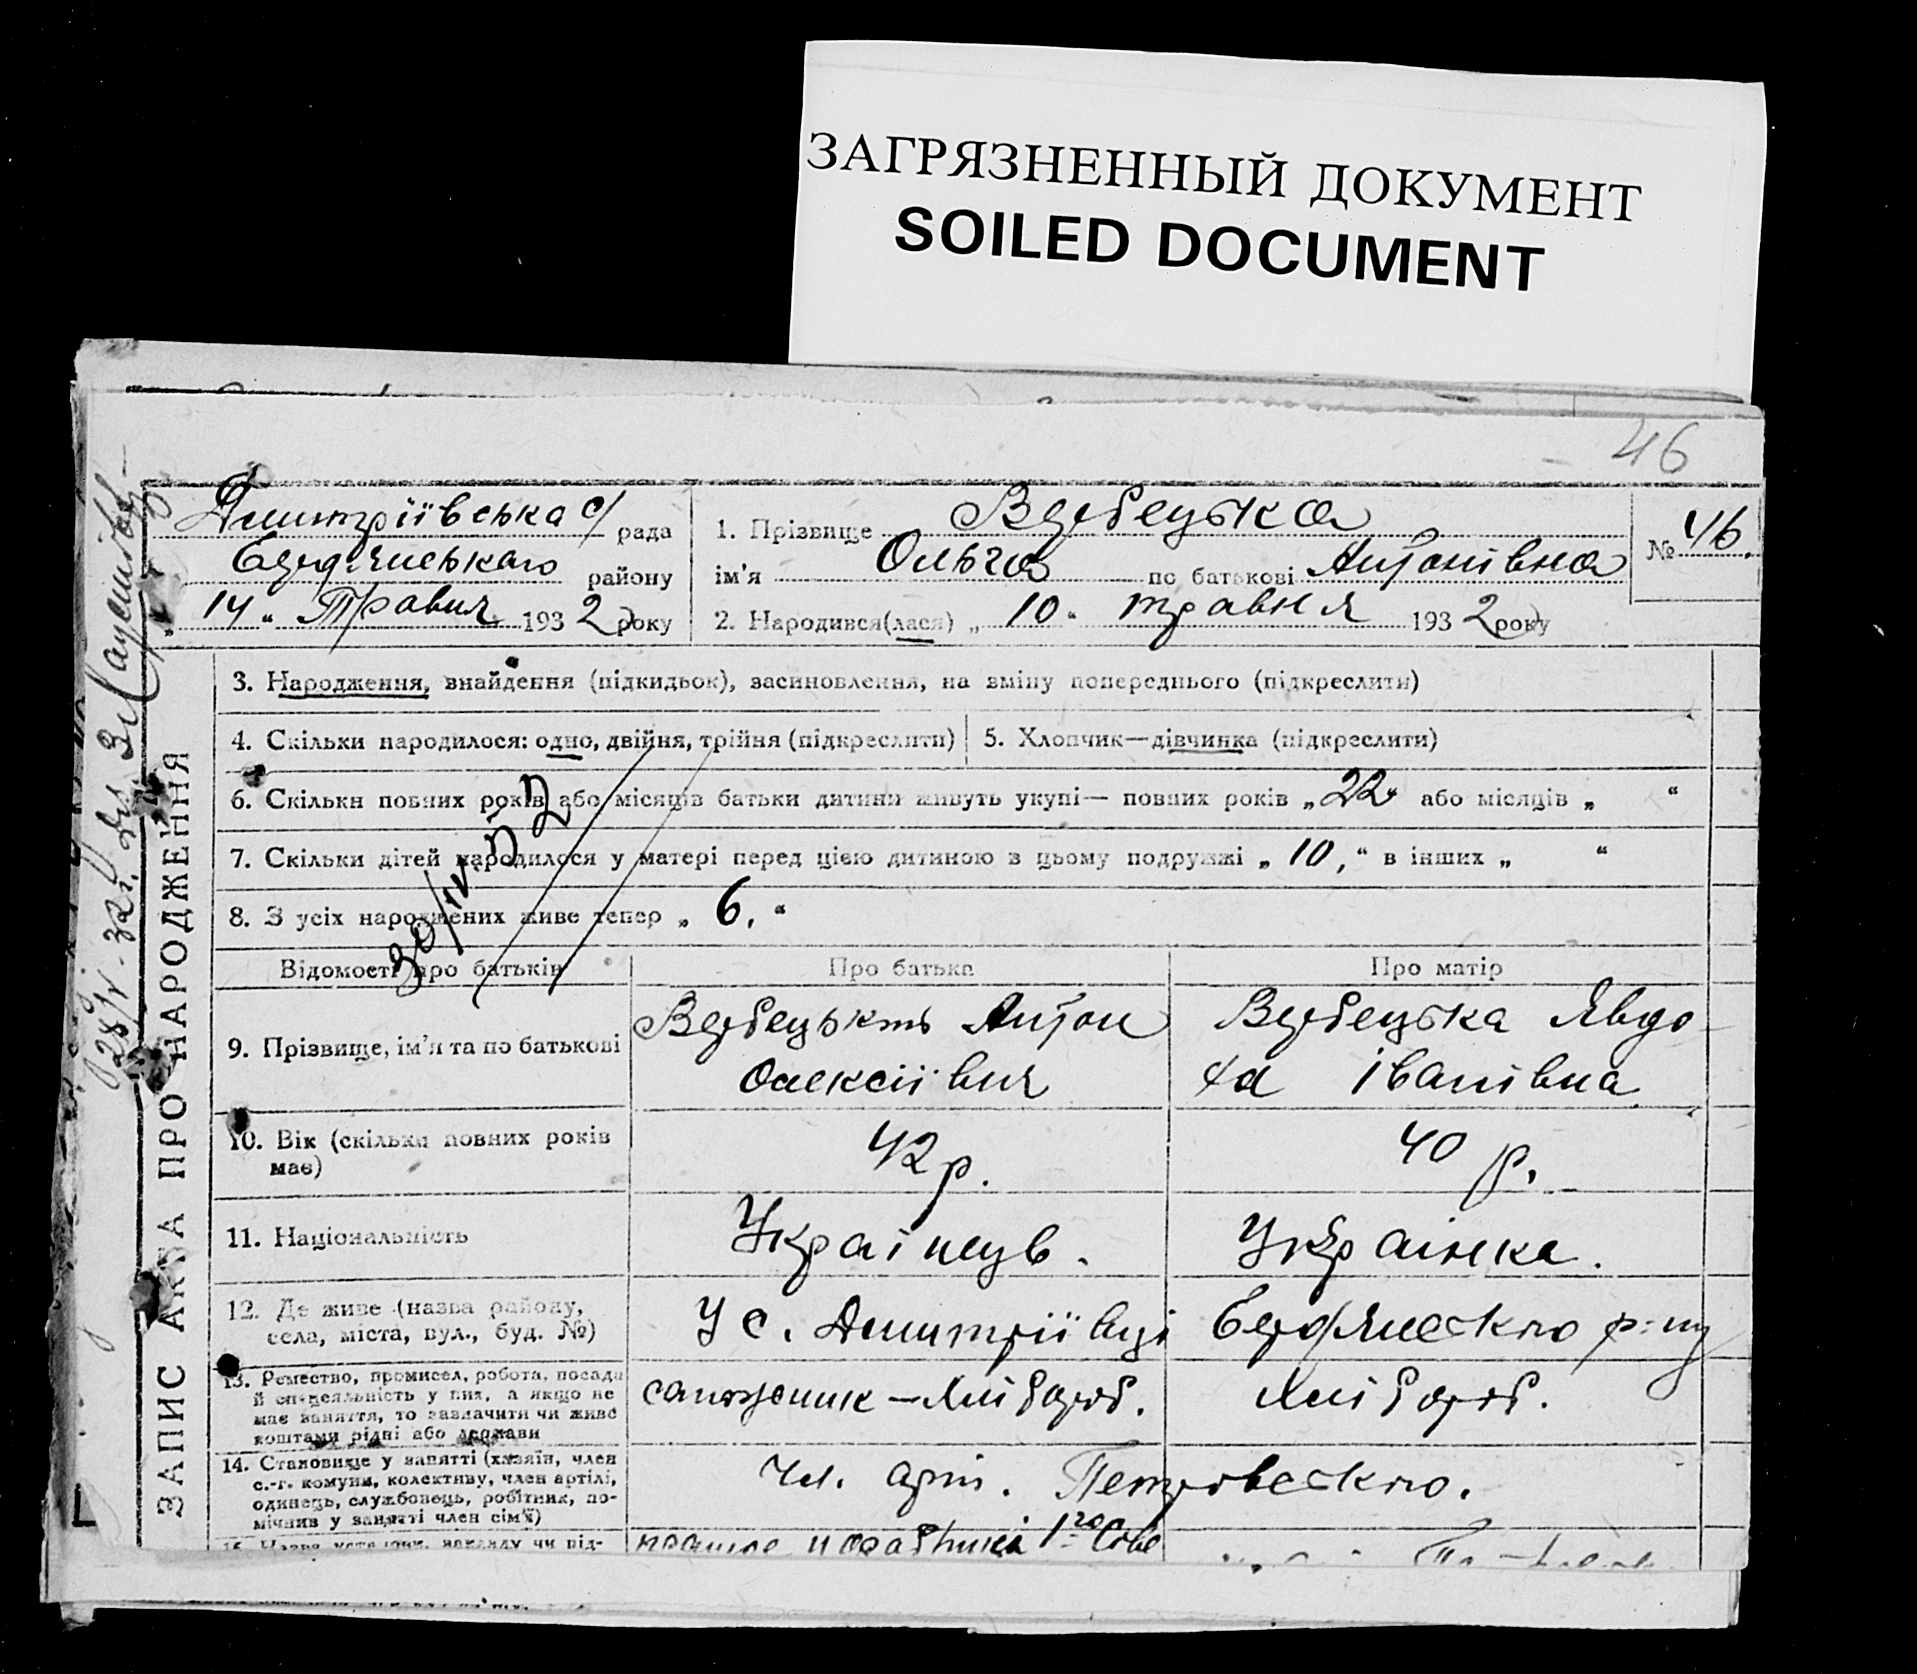 ЗАГРЯЗНЕННЫЙ ДОКУМЕНТ
SOILED DOCUMENT
46
Дмитріївська с/ рада
Бердянського району
„ 14 " Травня 1932 року
1. Прізвище Вербецька
ім'я Ольга по батькові Антонівна
2. Народився(лася) „ 10 " травня 1932 року
№ 46.
ЗАПИС АКТА ПРО НАРОДЖЕННЯ
3. Народження, знайдення (підкидьок), засиновлення, на зміну попереднього (підкреслити)
4. Скільки народилося: одно, двійня, трійня (підкреслити)
5. Хлопчик—дівчинка (підкреслити)
6. Скільки повних років або місяців батьки дитини живуть укупі— повних років „ 22 " або місяців „ "
7. Скільки дітей народилося у матері перед цією дитиною в цьому подружжі „ 10, " в інших „ "
8. З усіх народжених живе тепер „ 6. "
Відомості про батьків
Про батька
Про матір
9. Прізвище, ім'я та по батькові
Вербецькть Антон
Олексіївич
Вербецька Явдо-
ха Іванівна
10. Вік (скільки повних років
має)
42 р.
40 р.
11. Національність
Українець.
Українка.
12. Де живе (назва району,
села, міста, вул., буд. №)
У с. Дмитріївці Бердянеского р-ну
13. Ремество, промисел, робота, посада
й спеціяльність у них, а якщо не
має заняття, то зазначити чи живе
коштами рідні або держави
хлібороб.
хлібороб.
14. Становище у занятті (хазяїн, член
с.-г. комуни, колективу, член артілі,
одинець, службовець, робітник, по-
мічник у занятті член сім'ї)
Чл. арт. Петровеского.